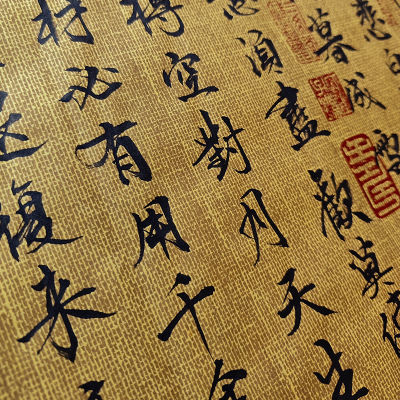 悲白
暮成雪
須盡歡莫使
樽空對月天生
材必有用千金
復來